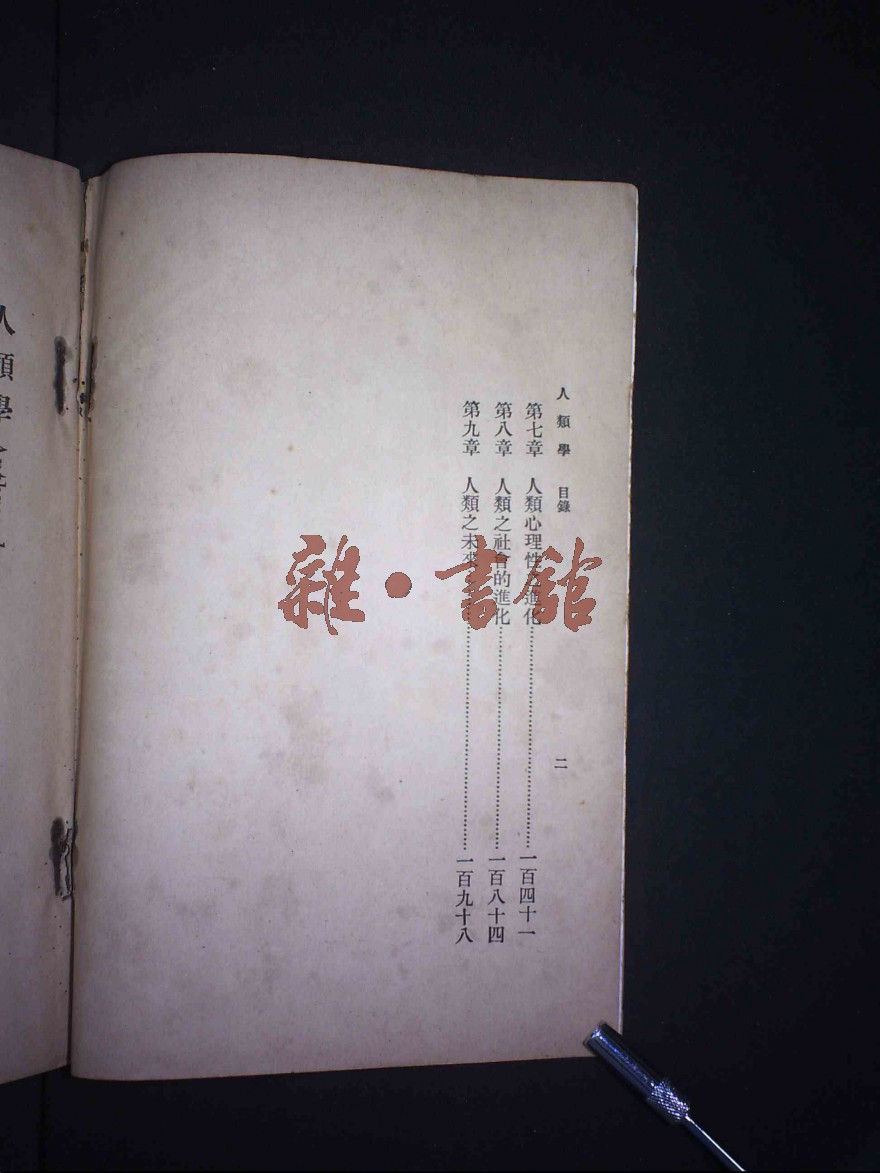 人類學 目錄
二
第七章 人類心理性之進化……一百四十一
第八章 人類之社會的進化……一百八十四
第九章 人類之未來……一百九十八
人類學
雜·書館